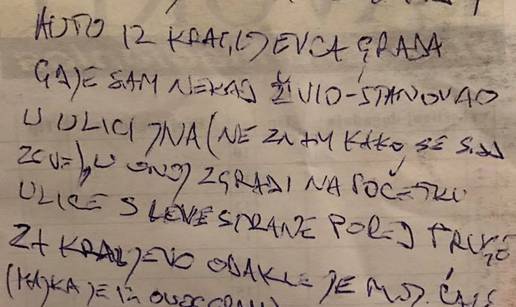 AUTO IZ KRAGUJEVCA GRADA
GDJE SAM NEKAD ŽIVIO-STANOVAO
U ULICI JNA (NE ZNAM KAKO SE SAD
ZOVE), U ONOJ ZGRADI NA POČETKU
ULICE S LEVE STRANE PORED PRUGE
ZA KRALJEVO ODAKLE JE MOJ
(MAJKA JE IZ